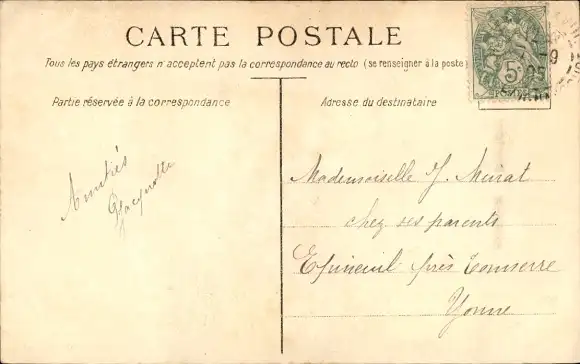 CARTE POSTALE
Tous les pays étrangers n'acceptent pas la correspondance au recto (se renseigner à la poste)
Partie réservée à la correspondance
Adresse du destinataire
5
Amitiés
Mademoiselle J. Meirat
chez ses parents
Epineuil près Tonnerre
Yonne